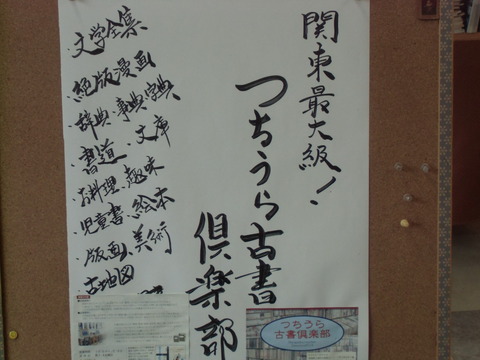 関東最大級!
つちうら古書
倶楽部
・文学全集
・絶版漫画
・辞典・事典・字典
・書道・文庫
・お料理・趣味
・児童書・絵本
・版画・美術
・古地図
つちうら
古書倶楽部